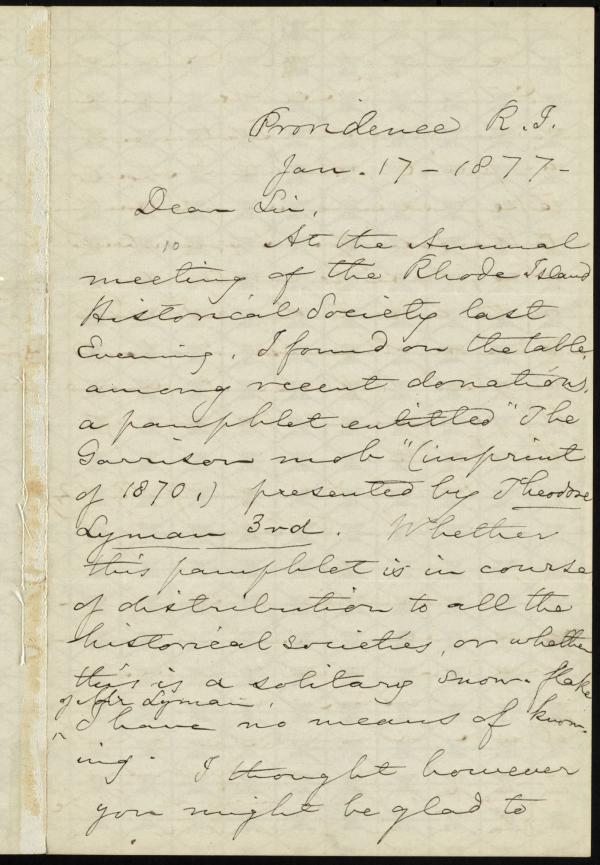 Providence R.I.
Jan. 17 - 1877 -
Dear Sir,
10 At the Annual
meeting of the Rhode Island
Historical Society last
Evening, I found on the table,
among recent donations,
a pamphlet entitled "The
Garrison mob" (imprint
of 1870.) presented by Theodore
Lyman 3rd. Whether
this pamphlet is in course
of distribution to all the
historical societies, or whether
this is a solitary snow-flake
of Mr Lyman,
^ I have no means of know-
ing. I thought however
you might be glad to